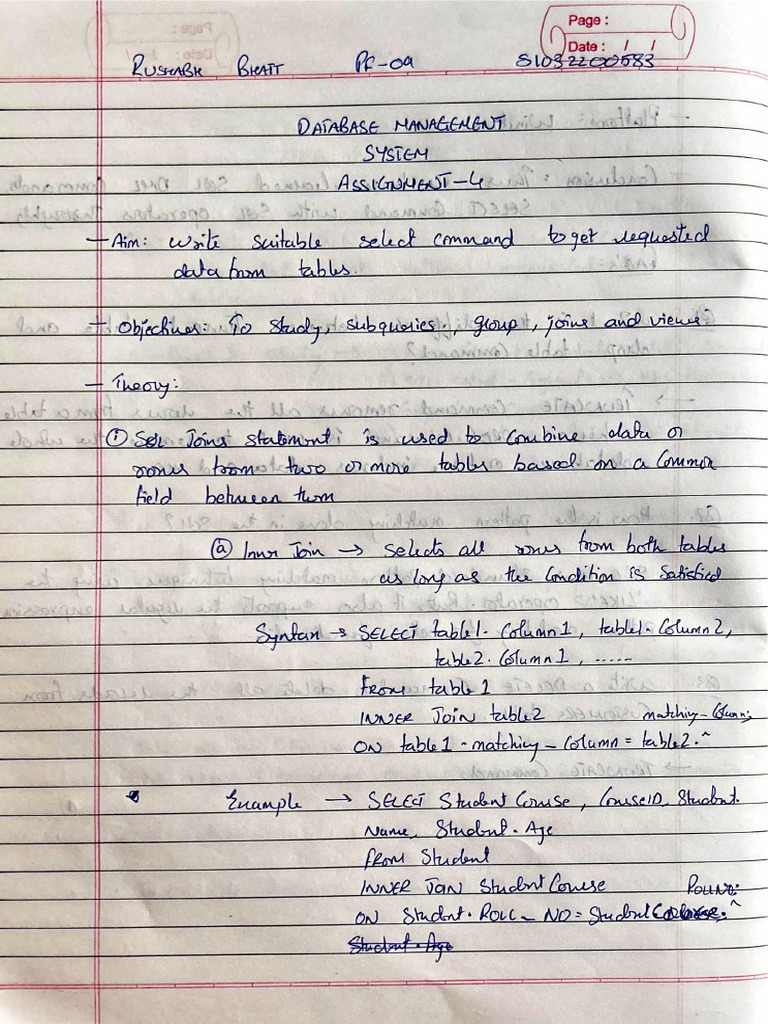 Page :
Date : / /
RUSHABH BHATT PF-09 S1032200583
DATABASE MANAGEMENT
SYSTEM
ASSIGNMENT-4
- Aim: Write suitable select command to get requested
data from tables.
- Objectives: To study, subqueries, group, joins and views
- Theory:
① SQL Joins statement is used to combine data or
rows from two or more tables based on a common
field between them
ⓐ Inner Join → selects all rows from both tables
as long as the condition is satisfied
Syntax → SELECT table1.column1, table1.column2,
table2.column1, ......
FROM table1
INNER JOIN table2
ON table1.matching_column = table2.^matching_column;
Example → SELECT StudentCourse, CourseID, Student.
Name, Student.Age
FROM Student
INNER JOIN StudentCourse
ON Student.ROLL_NO = StudentCourse.^
Student.Age